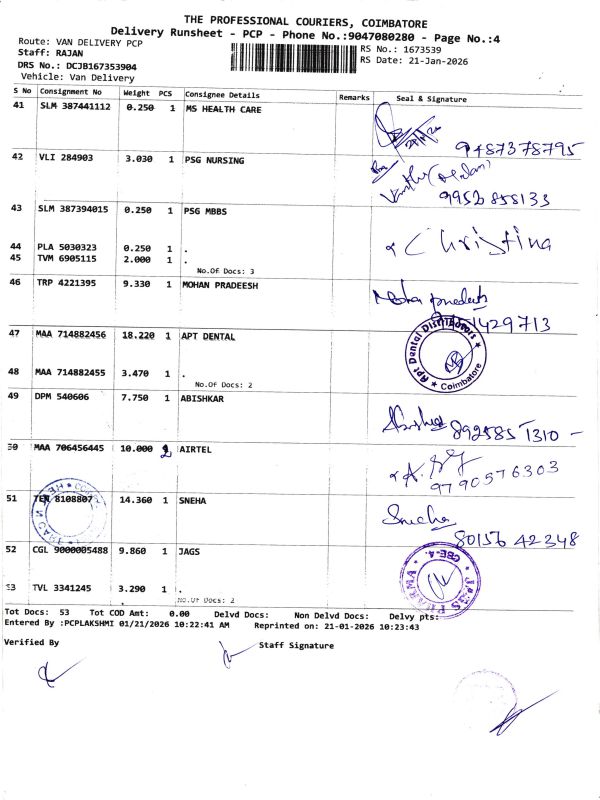 THE PROFESSIONAL COURIERS, COIMBATORE
Delivery Runsheet - PCP - Phone No.:9047080280 - Page No.:4
Route: VAN DELIVERY PCP
RS No.: 1673539
Staff: RAJAN
RS Date: 21-Jan-2026
DRS No.: DCJB167353904
Vehicle: Van Delivery
S No Consignment No Weight PCS Consignee Details Remarks Seal & Signature
41 SLM 387441112 0.250 1 MS HEALTH CARE
9487378795
42 VLI 284903 3.030 1 PSG NURSING
9952855133
43 SLM 387394015 0.250 1 PSG MBBS
Christina
44 PLA 5030323 0.250 1 .
45 TVM 6905115 2.000 1 .
No.Of Docs: 3
46 TRP 4221395 9.330 1 MOHAN PRADEESH
47 MAA 714882456 18.220 1 APT DENTAL
Apt Dental Distributors ★ Coimbatore ★
48 MAA 714882455 3.470 1 .
No.Of Docs: 2
49 DPM 540606 7.750 1 ABISHKAR
8925851310 -
50 MAA 706456445 10.000 2 AIRTEL
9790576303
51 TEN 8108807 14.360 1 SNEHA
Sneha
80156 42348
52 CGL 9000005488 9.860 1 JAGS
JAGS PHARMA ★ CBE-4. ★
53 TVL 3341245 3.290 1 .
No.Of Docs: 2
Tot Docs: 53 Tot COD Amt: 0.00 Delvd Docs: Non Delvd Docs: Delvy pts:
Entered By :PCPLAKSHMI 01/21/2026 10:22:41 AM Reprinted on: 21-01-2026 10:23:43
Verified By
Staff Signature